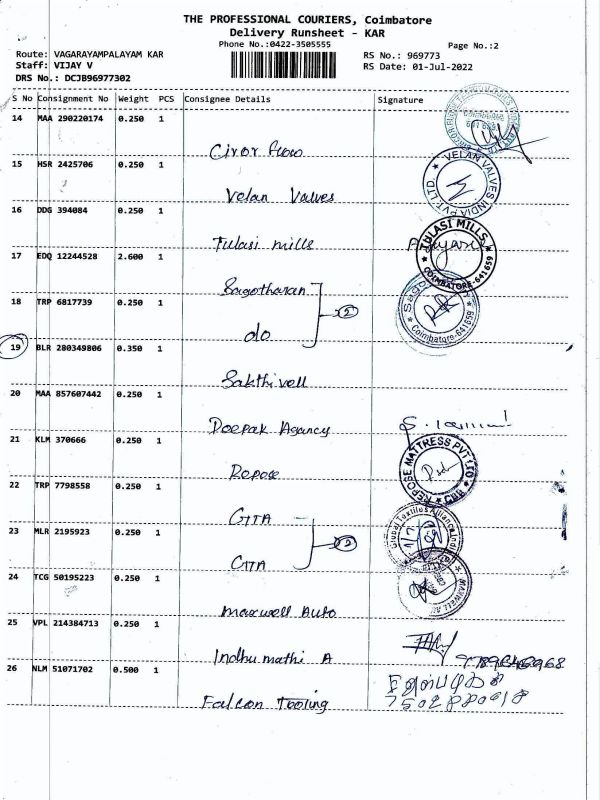 THE PROFESSIONAL COURIERS, Coimbatore
Delivery Runsheet - KAR
Phone No.:0422-3505555
Page No.:2
Route: VAGARAYAMPALAYAM KAR
RS No.: 969773
Staff: VIJAY V
RS Date: 01-Jul-2022
DRS No.: DCJB96977302
S No Consignment No Weight PCS Consignee Details Signature
14 MAA 290220174 0.250 1
Ciror flow
15 HSR 2425706 0.250 1
Velan Valves
VELAN VALVES INDIA PVT. LTD.
16 DDG 394084 0.250 1
Tulasi mills
TULASI MILLS
COIMBATORE-641659
17 EDQ 12244528 2.600 1
Sagotharan
2
18 TRP 6817739 0.250 1
do
Coimbatore-641659
19 BLR 280349806 0.350 1
Sakthivell
20 MAA 857607442 0.250 1
Deepak Agancy
21 KLM 370666 0.250 1
Repose
REPOSE MATTRESS PVT LTD
CBE
22 TRP 7798558 0.250 1
GTTA
2
23 MLR 2195923 0.250 1
GTTA
Global Textiles Alliance India
24 TCG 50195223 0.250 1
Maxwell Auto
25 VPL 214384713 0.250 1
Indhumathi A
26 NLM 51071702 0.500 1
Falcon Tooling